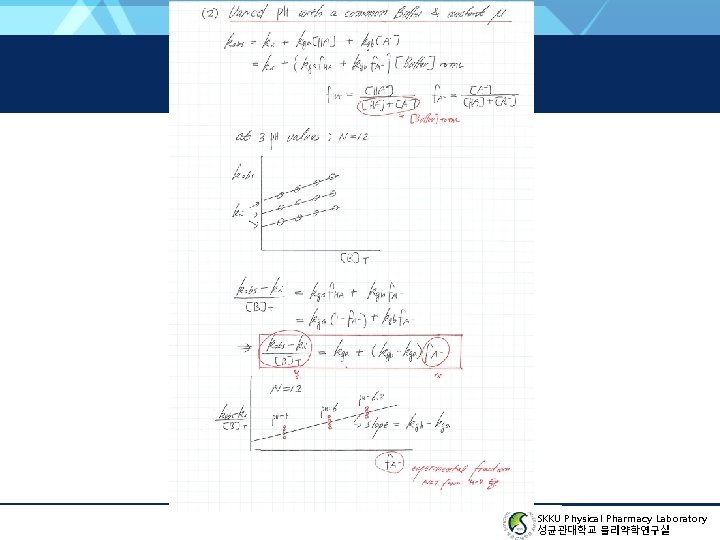 (2) Varied pH with a common Buffer & constant μ
kobs = ki + kga[HA] + kgb[A⁻]
= ki + (kga fHA + kgb fA⁻) [Buffer] total
fHA = [HA] / ([HA] + [A⁻])  fA⁻ = [A⁻] / ([HA] + [A⁻])
[Buffer] total
at 3 pH values : N=12
kobs
ki
[B]T
(kobs − ki) / [B]T = kga fHA + kgb fA⁻
= kga (1 − fA⁻) + kgb fA⁻
⇒ (kobs − ki) / [B]T = kga + (kgb − kga) fA⁻
y x
N=12
(kobs − ki) / [B]T
pH=6
slope = kgb − kga
fA⁻ experimental fraction
SKKU Physical Pharmacy Laboratory
성균관대학교 물리약학연구실